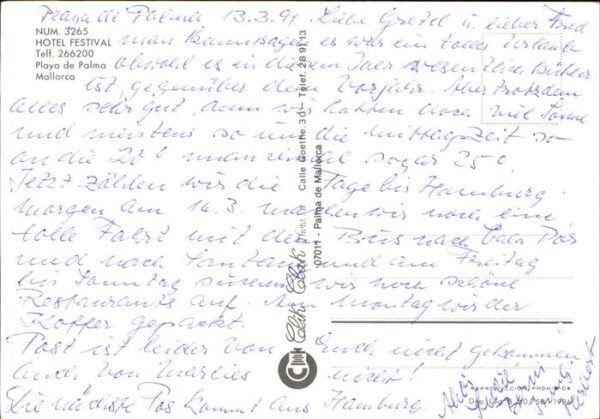 Playa de Palma 13.3.91. Liebe Gretel u. lieber Fred
NUM. 3265
HOTEL FESTIVAL
Telf. 266200
Playa de Palma
Mallorca
man kann sagen es war ein toller Urlaub
obwohl es in diesem Jahr wesentlich kühler
ist, gegenüber dem Vorjahr. Aber trotzdem
alles sehr gut, denn wir hatten doch viel Sonne
und meistens so um die Mittagszeit so
an die 20° manchmal sogar 25°.
Jetzt zählen wir die Tage bis Hamburg.
morgen am 14.3. machen wir noch eine
tolle Fahrt mit dem Bus nach Cala
und nach und am Freitag
bis Sonntag wir noch schöne
Restaurants auf. Am Montag wird der
Koffer gepackt.
Post ist leider von Euch nicht gekommen
auch von nicht!
Die nächste Pos kommt aus Hamburg,
Click Clack
Calle Goethe, 30 - Telef. 28 91 13
07011 - Palma de Mallorca
REPRODUCCION PROHIBIDA